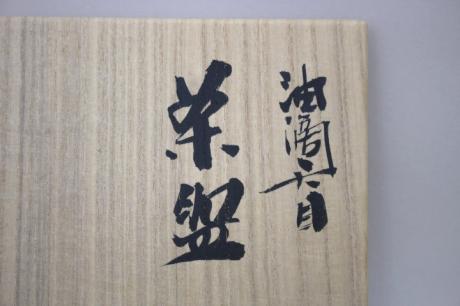 油滴天目
茶盌